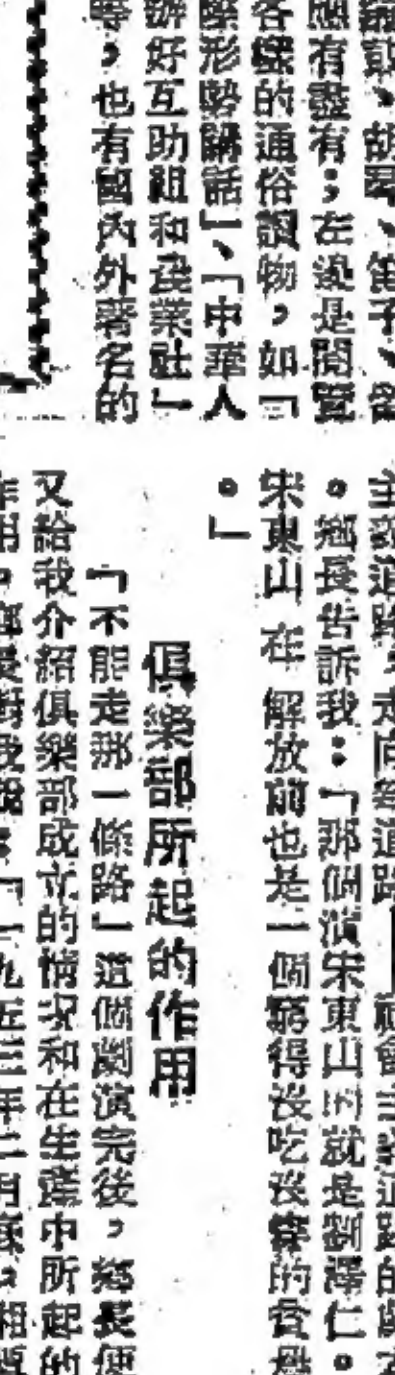 應有盡有；左邊是閱覽
各樣的通俗讀物，如「
際形勢講話」、「中華人
辦好互助組和農業社」
等，也有國內外著名的
。鄉長告訴我：「那個演宋東山的就是劉澤仁。
宋東山在解放前也是一個窮得沒吃沒穿的貧農
。」
俱樂部所起的作用
「不能走那一條路」這個劇演完後，鄉長便
又給我介紹俱樂部成立的情況和在生產中所起的